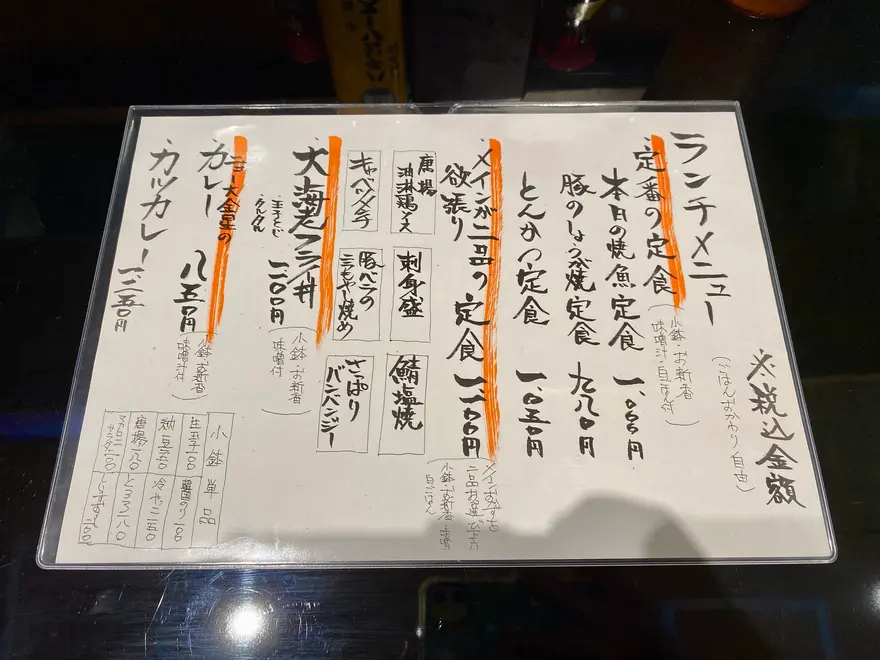 ランチメニュー
※税込金額
(ごはんおかわり自由)
・定番の定食
(小鉢・お新香
味噌汁・白ごはん付)
本日の焼魚定食 一、〇〇〇円
豚のしょうが焼定食 九八〇円
とんかつ定食 一、〇五〇円
・メインが二品の定食 一、二〇〇円
欲張り
メインおかずを
二品お選び下さい
小鉢・お新香・味噌
白ごはん
唐揚
油淋鶏ソース
刺身盛
鯖塩焼
キャベツメンチ
豚バラの
もやし焼め
さっぱり
バンバンジー
・大海老フライ丼
・玉子とじ
・タルタル
一、二〇〇円
(小鉢・お新香
味噌汁付)
・ニュー大金星の
カレー 八五〇円
(小鉢・お新香
味噌汁付)
・カツカレー 一、二五〇円
小鉢単品
生玉子一〇〇
納豆一五〇 冷やっこ一五〇
唐揚一八〇 とろろ一八〇
マカロニサラダ二〇〇